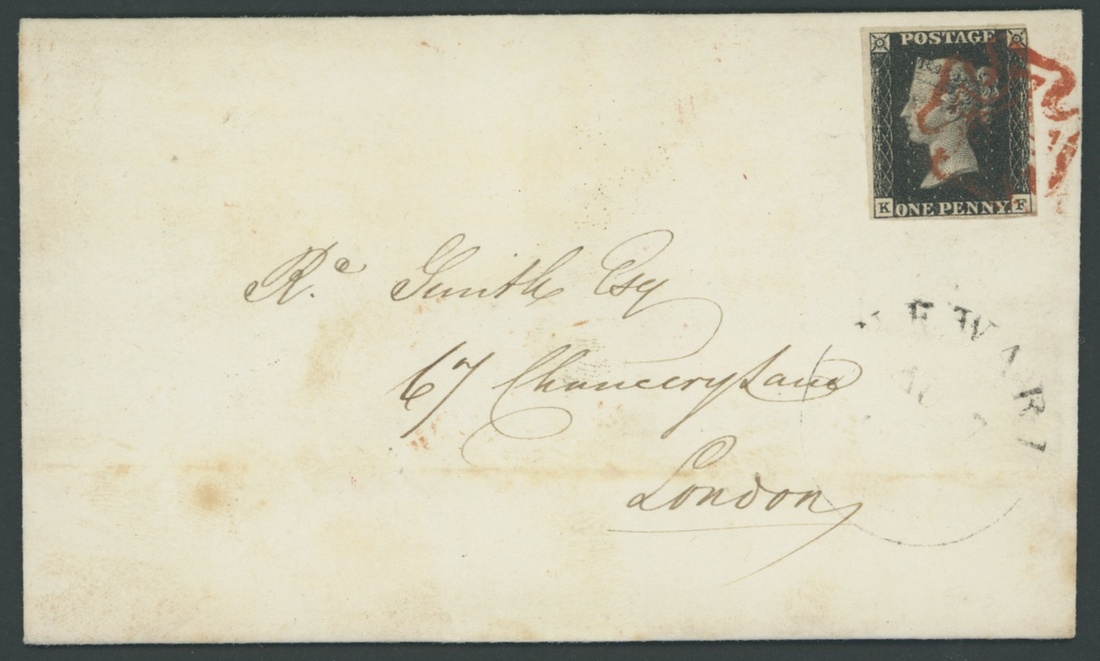 POSTAGE
K ONE PENNY. F
Rd. Smith Esq
67 Chancery Lane
London